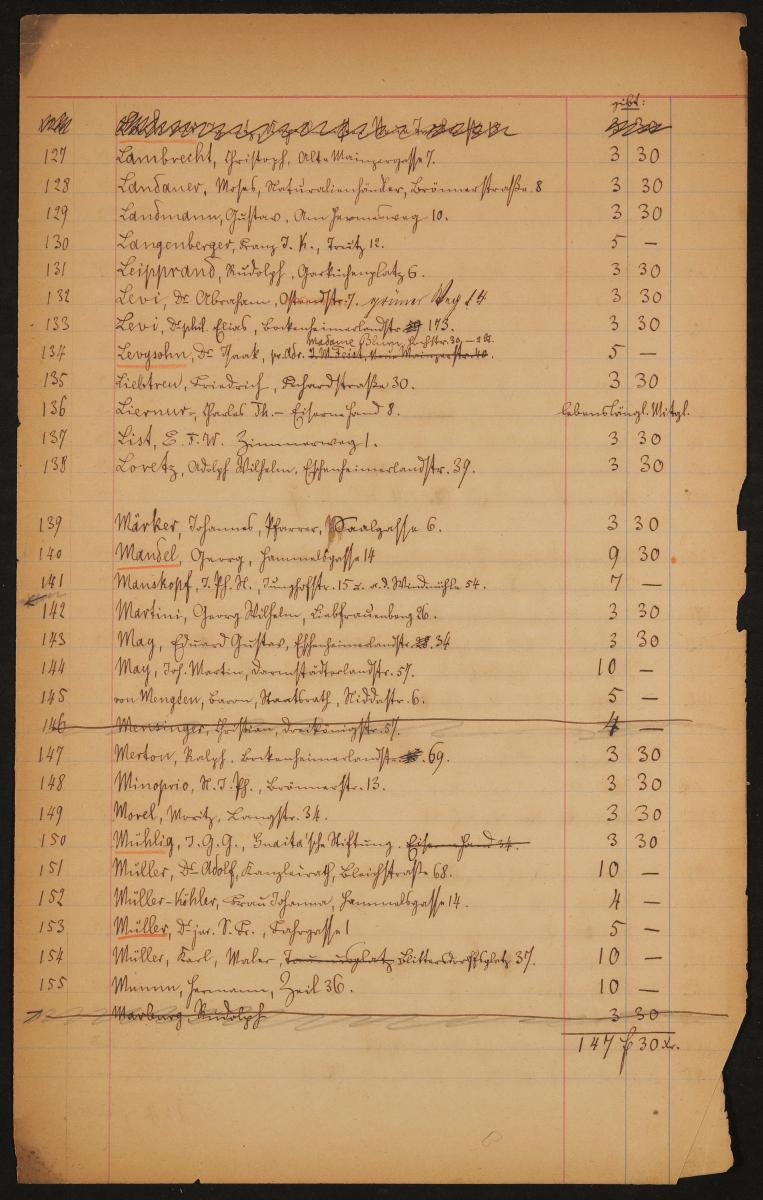 gibt:
127 Lambrecht, Christoph, Alte Mainzergasse 7. 3 30
128 Landauer, Moses, Naturalienhändler, Brönnerstraße 8 3 30
129 Landmann, Gustav, Am Hermesweg 10. 3 30
130 Langenberger, Franz J. K., Trutz 12. 5 —
131 Leipprand, Rudolph, Garküchenplatz 6. 3 30
132 Levi, Dr Abraham, Ostendstr. 7. grüner Weg 14 3 30
133 Levi, Dr phil. Elias, Bockenheimerlandstr. 173. 3 30
Madame Blum, Hochstr. 30,
134 Levysohn, Dr Isaak, pr. Adr. J. M. Feist, Neue Mainzerstr. 5 —
135 Liebtreu, Friedrich, Eichardstraße 30. 3 30
136 Liernur, Charles Th. — Eiserne Hand 8. lebenslängl. Mitgl.
137 List, E. F. W. Zimmerweg 1. 3 30
138 Loretz, Adolph Wilhelm, Eschenheimerlandstr. 39. 3 30
139 Märker, Johannes, Pfarrer, Saalgasse 6. 3 30
140 Mandel, Georg, Hammelsgasse 14 9 30
141 Manskopf, J. Ph. N., Junghofstr. 15 u. a. d. Windmühle 54. 7 —
142 Martini, Georg Wilhelm, Liebfrauenberg 26. 3 30
143 May, Eduard Gustav, Eschenheimerlandstr. 34 3 30
144 May, Joh. Martin, Darmstädterlandstr. 57. 10 —
145 von Mengden, Baron, Staatsrath, Niddastr. 6. 5 —
146 Mensinger, Christian, Dreikönigstr. 57. 4 —
147 Merton, Ralph, Bockenheimerlandstr. 69. 3 30
148 Minoprio, N. J. Ph., Brönnerstr. 13. 3 30
149 Morel, Moritz, Langstr. 34. 3 30
150 Mühlig, J. G. G., Gnaita'sche Stiftung. Eiserne Hand 34. 3 30
151 Müller, Dr Adolf, Kanzleirath, Bleichstraße 68. 10 —
152 Müller-Köhler, Frau Johanna, Hammelsgasse 14. 4 —
153 Müller, Dr jur. S. Fr., Fahrgasse 1 5 —
154 Müller, Karl, Maler, Taunusplatz Blittersdorffsplatz 37. 10 —
155 Mumm, Hermann, Zeil 36. 10 —
Marburg Rudolph 3 30
147 f 30 Kr.